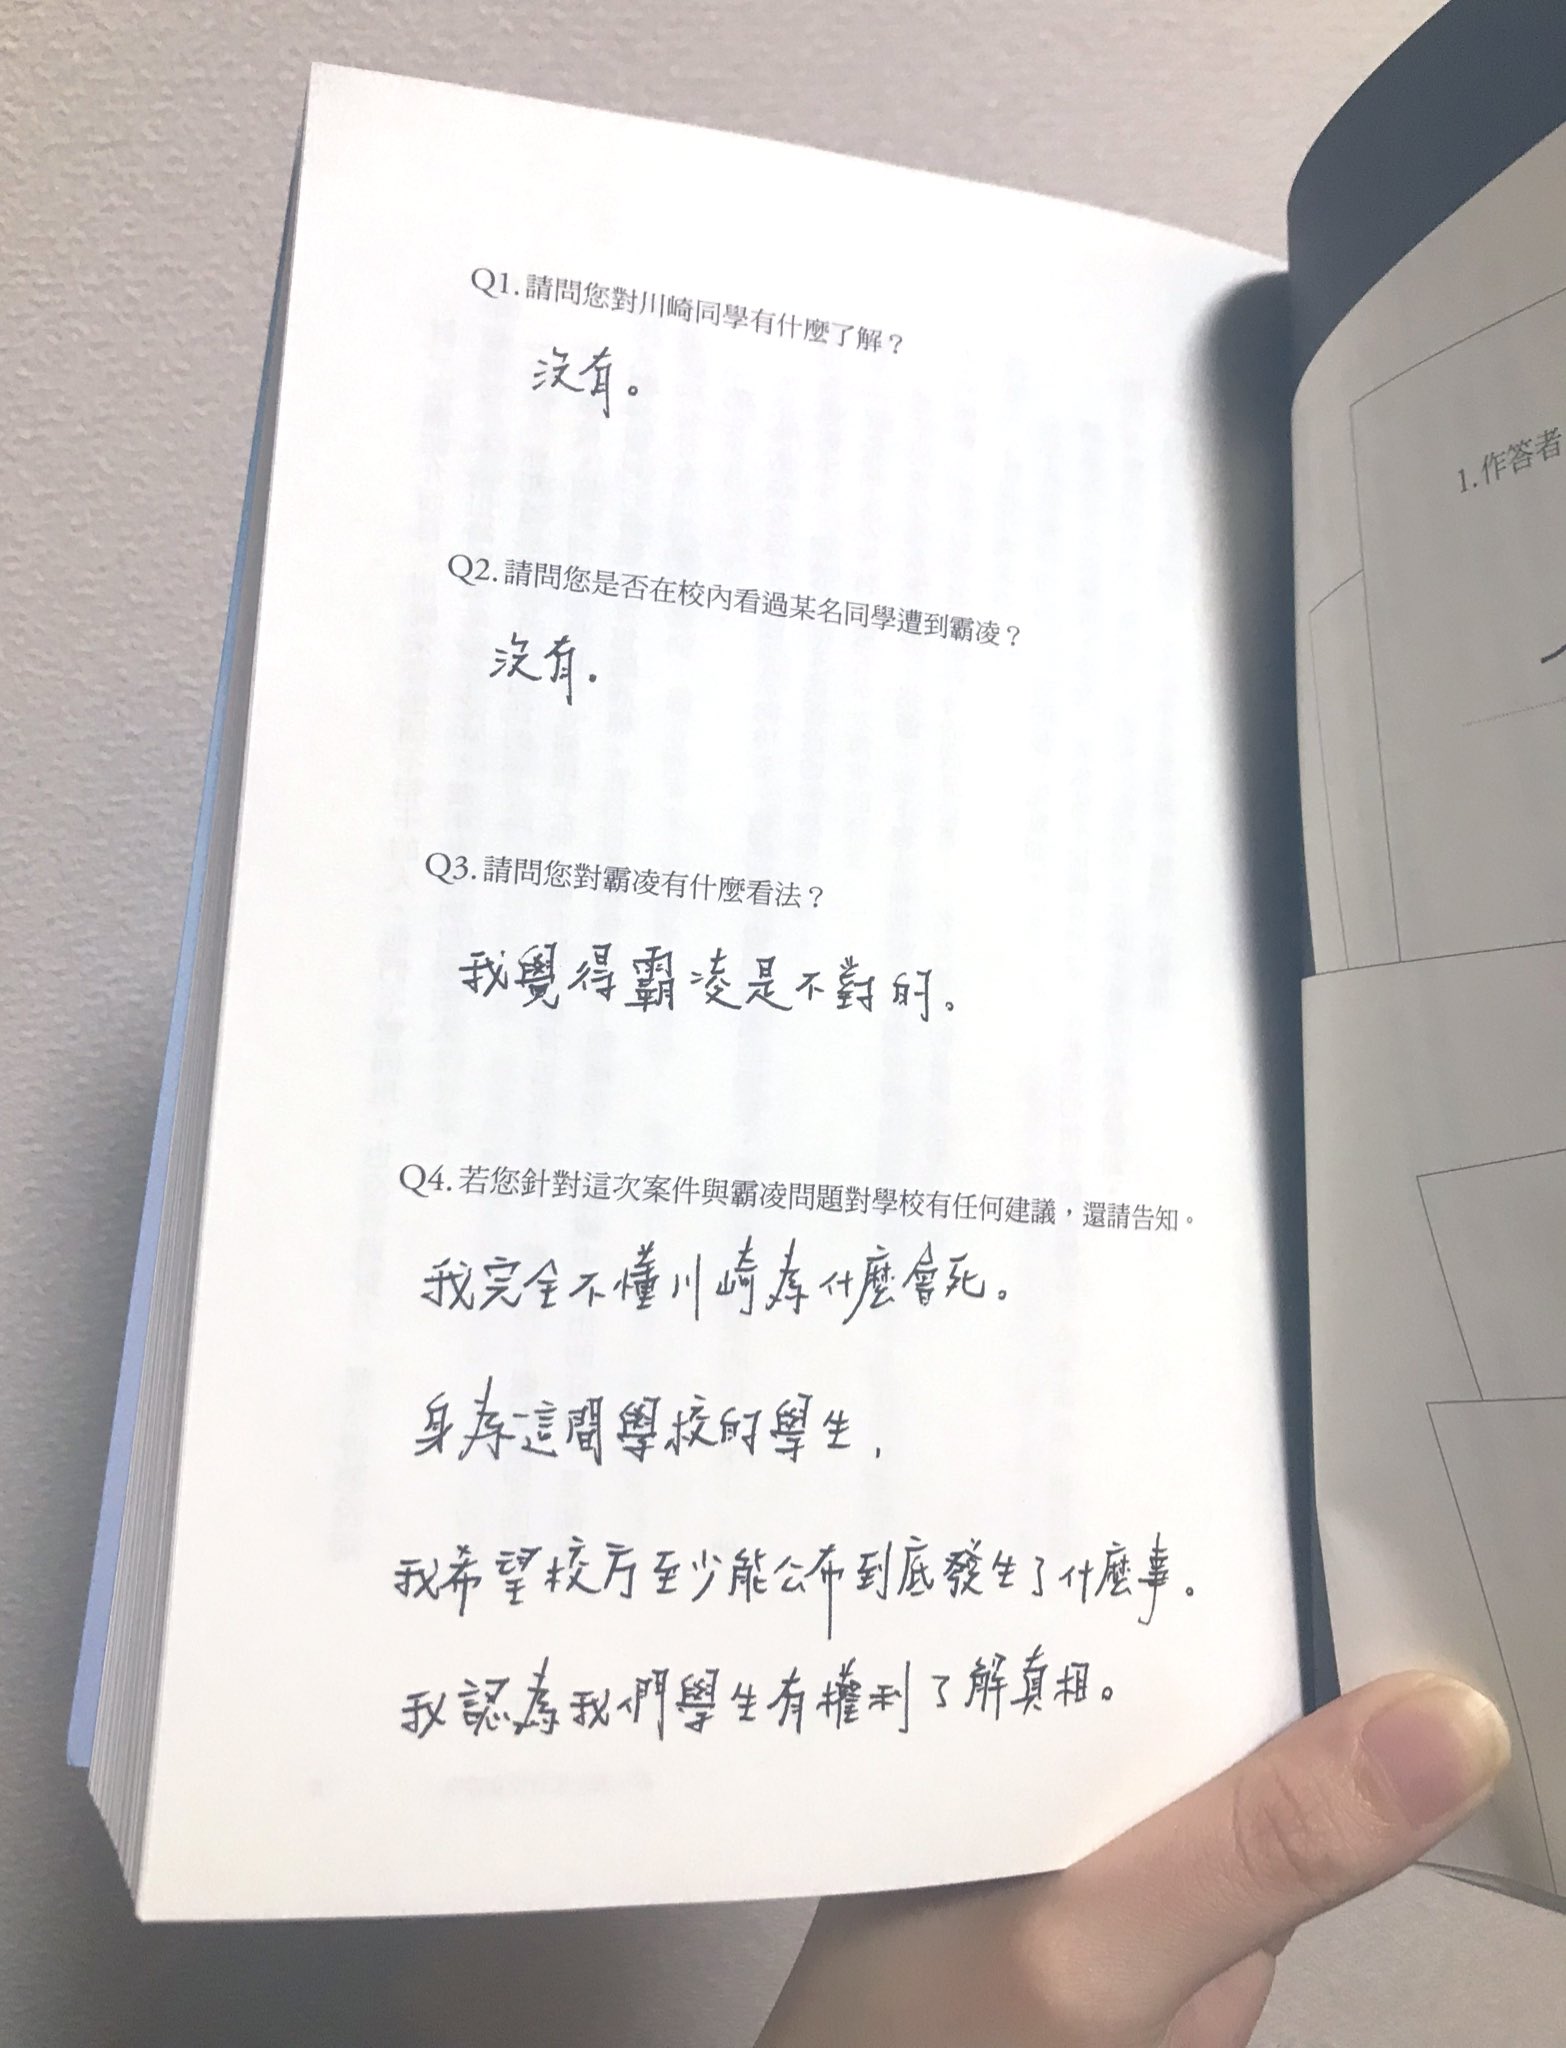 Q1.請問您對川崎同學有什麼了解？
沒有。
Q2.請問您是否在校內看過某名同學遭到霸凌？
沒有.
Q3.請問您對霸凌有什麼看法？
我覺得霸凌是不對的。
Q4.若您針對這次案件與霸凌問題對學校有任何建議，還請告知。
我完全不懂川崎為什麼會死。
身為這間學校的學生,
我希望校方至少能公布到底發生了什麼事。
我認為我們學生有權利了解真相。
1.作答者